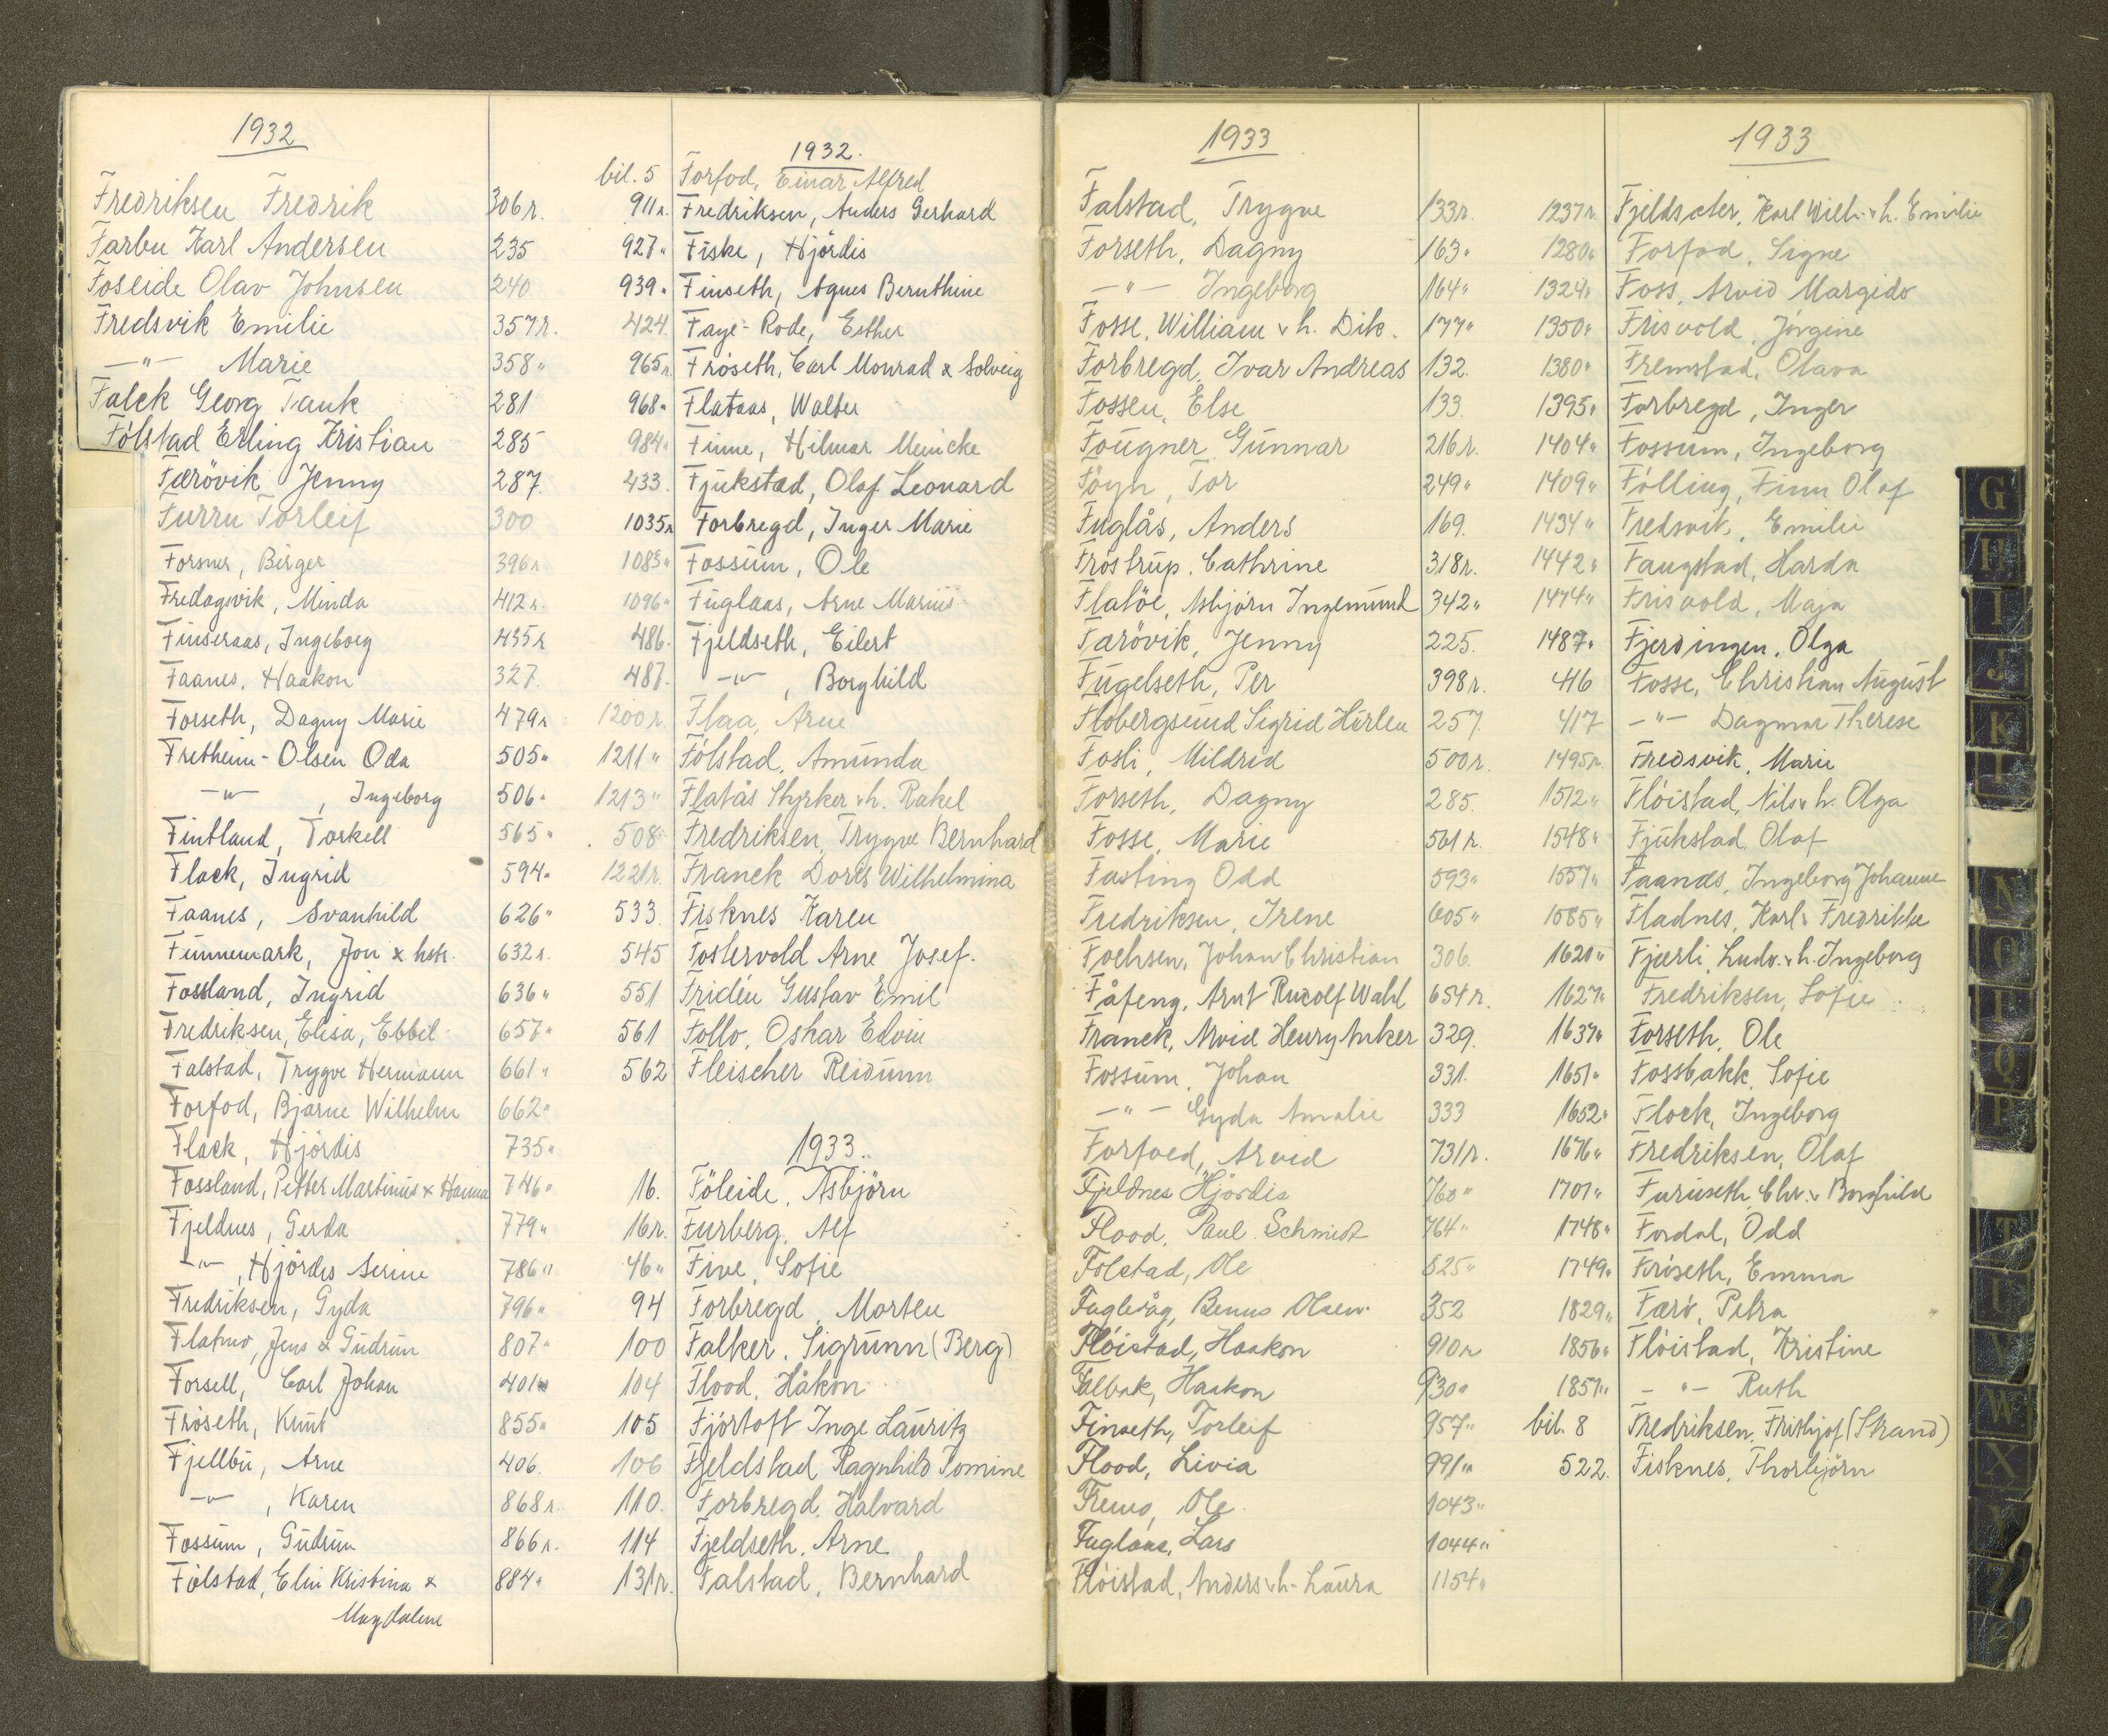 1932
Fredriksen Fredrik 306 r.
Farbu Karl Andersen 235
Foseide Olav Johnsen 240
Fredsvik Emilie 357 r.
—"— Marie 358 "
Falck Georg Tank 281
Fölstad Erling Kristian 285
Færövik Jenny 287.
Furru Torleif 300
Forsner, Birger 396 r
Fredagsvik, Minda 412 r.
Finseraas, Ingeborg 435 r
Faanes, Haakon 327.
Forseth, Dagny Marie 479 r
Fretheim-Olsen Oda 505 "
—"— , Ingeborg 506 "
Fintland, Torkell 565 "
Flack, Ingrid 594 "
Faanes, Svanhild 626 "
Finnemark, Jon & hstr. 632 r.
Fossland, Ingrid 636 "
Fredriksen, Elisa, Ebbel 657 "
Falstad, Trygve Hermann 661 "
Forfod, Bjarne Wilhelm 662 "
Flack, Hjördis 735 "
Fossland, Petter Martinus & Hanna 746 "
Fjeldnes, Gerda 779 "
—"— , Hjördis Serine 786 "
Fredriksen, Gyda 796 "
Flatmo, Jens & Gudrun 807 "
Forsell, Carl Johan 401
Fröseth, Knut 855 "
Fjellbu, Arne 406.
—"— , Karen 868 r.
Fossum, Gudrun 866 r.
Fölstad, Elin Kristina & 884 "
Magdalene
1932.
bil. 5 Forfod, Einar Alfred
911 r. Fredriksen, Anders Gerhard
927 " Fiske, Hjördis
939 " Finseth, Agnes Bernthine
424. Faye-Rode, Esther
965 r Fröseth, Carl Monrad & Solveig
968 " Flataas, Walter
984 " Finne, Hilmar Meincke
433. Fjukstad, Olaf Leonard
1035 r Forbregd, Inger Marie
1085 " Fossum, Ole
1096 " Fuglaas, Arne Marius
486. Fjeldseth, Eilert
487. —"— , Borghild
1200 r. Flaa, Arne
1211 " Fölstad, Amunda
1213 " Flatås Styrker & h. Rakel
508 Fredriksen, Trygve Bernhard
1221 r. Franck Doris Wilhelmina
533 Fisknes Karen
545 Fostervold Arne Josef.
551 Fridén Gustav Emil
561 Follo, Oskar Edvin
562 Fleischer Reidunn
1933.
16. Föleide, Asbjörn
16 r. Furberg, Alf
46 " Five, Sofie
94 Forbregd, Morten
100 Falker, Sigrunn (Berg)
104 Flood, Håkon
105 Fjörtoft Inge Lauritz
106 Fjeldstad Ragnhild Tomine
110. Forbregd, Halvard
114 Fjeldseth, Arne
131 r. Falstad, Bernhard
1933
Falstad, Trygve 133 r.
Forseth, Dagny 163 "
—"— Ingeborg 164 "
Fosse, William & h. Dik. 177 "
Forbregd, Ivar Andreas 132.
Fossen, Else 133.
Fougner Gunnar 216 r.
Föyn, Tor 249 "
Fuglås, Anders 169.
Fröstrup, Cathrine 318 r.
Flatöe, Asbjörn Ingemund 342 "
Færövik, Jenny 225.
Fugelseth, Per 398 r.
Flobergsund Sigrid Hürlen 257.
Fosli, Mildrid 500 r.
Forseth, Dagny 285.
Fosse, Marie 561 r.
Fasting Odd 593 "
Fredriksen, Irene 605 "
Foehsen, Johan Christian 306.
Fåfeng, Arnt Rudolf Wahl 654 r.
Franck, Arvid Henry Anker 329.
Fossum, Johan 331.
—"— Gyda Amalie 333
Forfoed, Arvid 731 r.
Fjeldnes Hjördis 760 "
Flood, Paul Schmidt 764 "
Folstad, Ole 825 "
Fuglevåg, Benus Olsen 352
Flöistad, Haakon 910 r
Falbak, Haakon 930 "
Finseth, Torleif 957 "
Flood, Livia 991 "
Fremo, Ole. 1043 "
Fuglaas, Lars 1044 "
Flöistad, Anders & h. Laura 1154 "
1933
1237 r. Fjeldsæter, Karl Wilh. & h. Emilie
1280 " Forfod, Signe
1324 " Foss, Arvid Margido
1350 " Frisvold, Jörgine
1380 " Fremstad, Olava
1395 " Forbregd, Inger
1404 " Fossum, Ingeborg
1409 " Fölling, Finn Olaf
1434 " Fredsvik, Emilie
1442 " Faugstad, Harda
1474 " Frisvold, Maja
1487 " Fjerdingen, Olga
416 Fosse, Christian August
417 —"— Dagmar Therese
1495 r. Fredsvik, Marie
1512 " Flöistad, Nils & h. Olga
1548 " Fjukstad, Olaf
1557 " Faanes, Ingeborg Johanne
1585 " Fladnes, Karl & Fredrikke
1620 " Fjærli, Ludv. & h. Ingeborg
1627 " Fredriksen, Sofie
1637 " Forseth, Ole
1651 " Fossbakk, Sofie
1652 " Flock, Ingeborg
1676 " Fredriksen, Olaf
1701 " Furuseth, Chr. & Borghild
1748 " Fordal, Odd
1749 " Fröseth, Emma
1829 " Færö, Petra
1856 " Flöistad, Kristine
1857 " —"— Ruth
bil. 8 Fredriksen, Frithjof (Strand)
522. Fisknes, Thorbjörn
G
H
I
J
K
L
N
O
P
Q
T
U
V
W
X
Y
Z